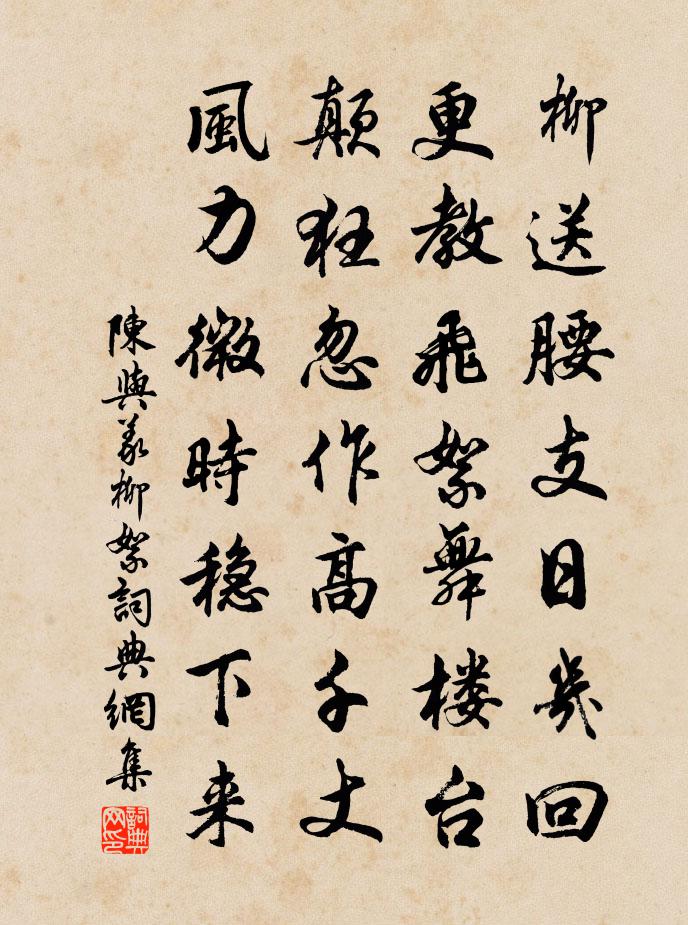 柳送腰支日幾回
更教飛絮舞楼台
顛狂忽作高千丈
風力微時穏下来
陳與義柳絮詞典網集
詞典网印